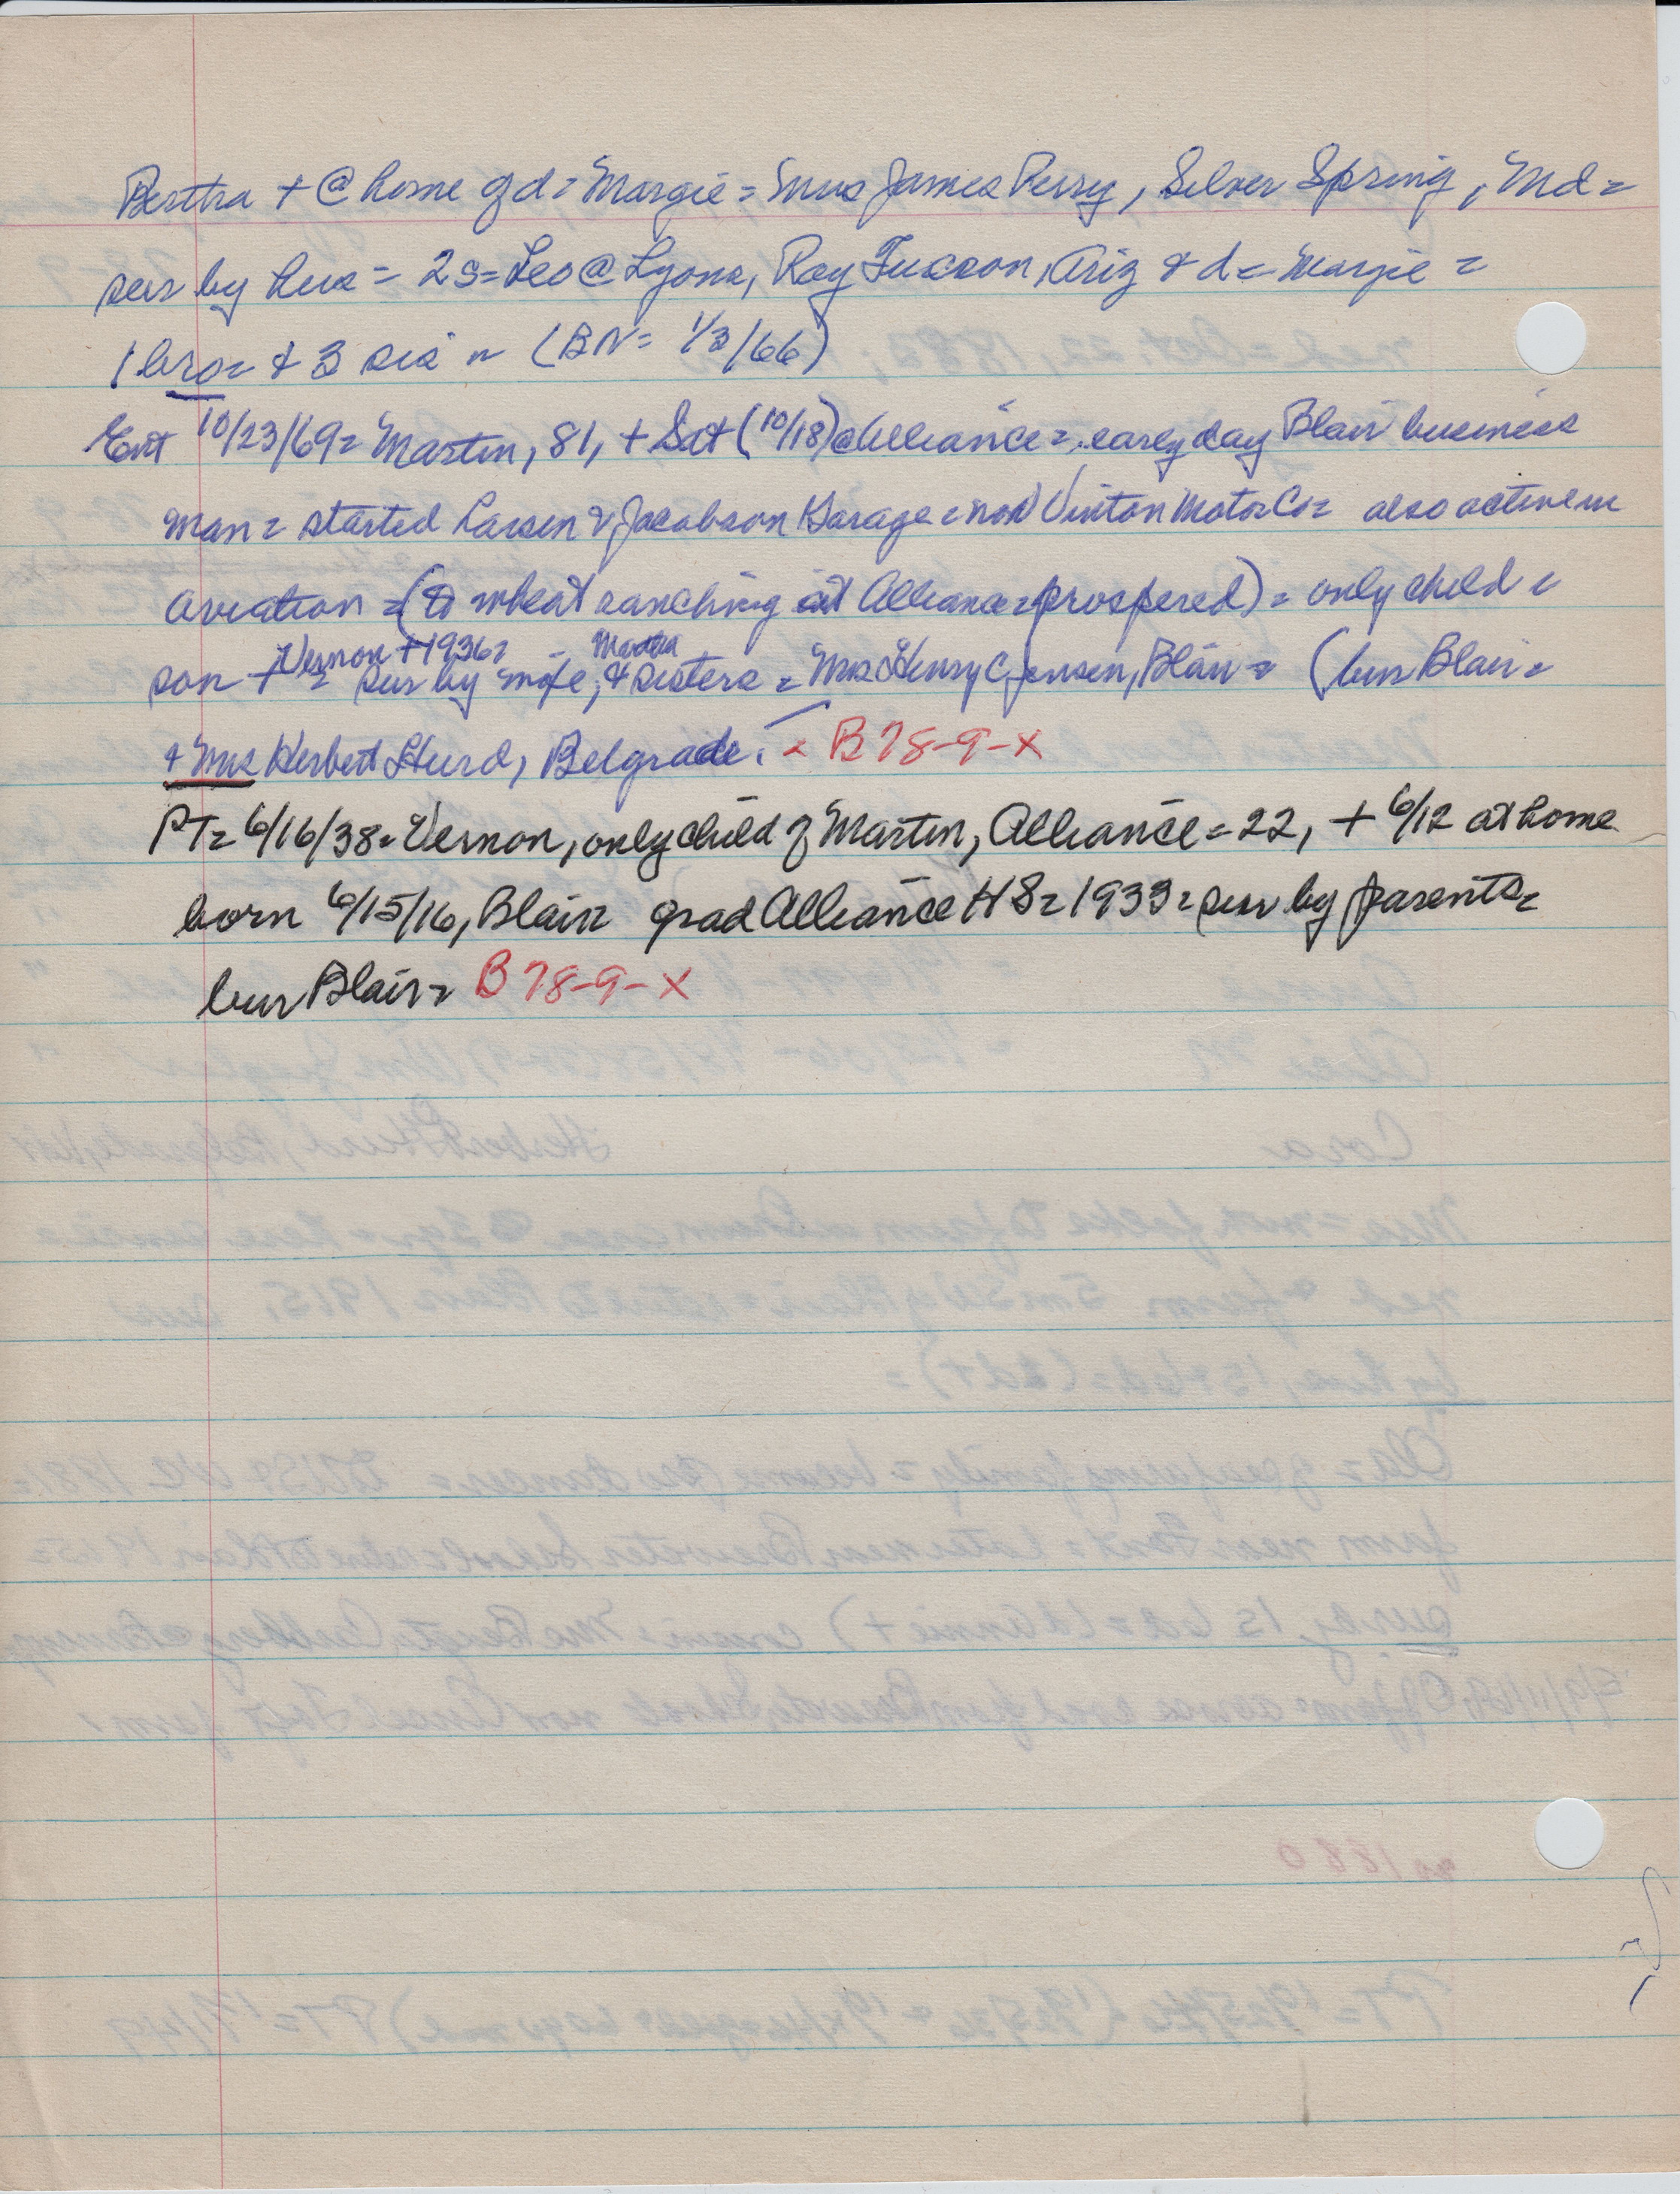 Bertha + @ home of d = Margie = Mrs James Perry, Silver Spring, Md =
sur by hus = 2 s = Leo @ Lyons, Ray Tucson, Ariz & d = Margie =
1 bro = & 3 sis = (BN = 1/3/66)
Ent 10/23/69 = Martin, 81, + Sat (10/18) @ Alliance = early day Blair business
man = started Larsen & Jacobson Garage = now Vinton Motor Co = also active in
aviation = (to wheat ranching at Alliance = prospered) = only child =
Vernon + 1936 = Martha
son + = sur by wife, & sisters = Mrs Henry C Jensen, Blair = (bur Blair =
& Mrs Herbert Hurd, Belgrade. = B 78-9-X
PT = 6/16/38 = Vernon, only child of Martin, Alliance = 22, + 6/12 at home
born 6/15/16, Blair = grad Alliance HS = 1933 = sur by parents =
bur Blair = B 78-9-X